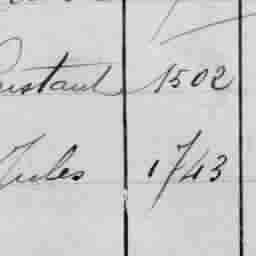 Constant 1502
Jules 1743